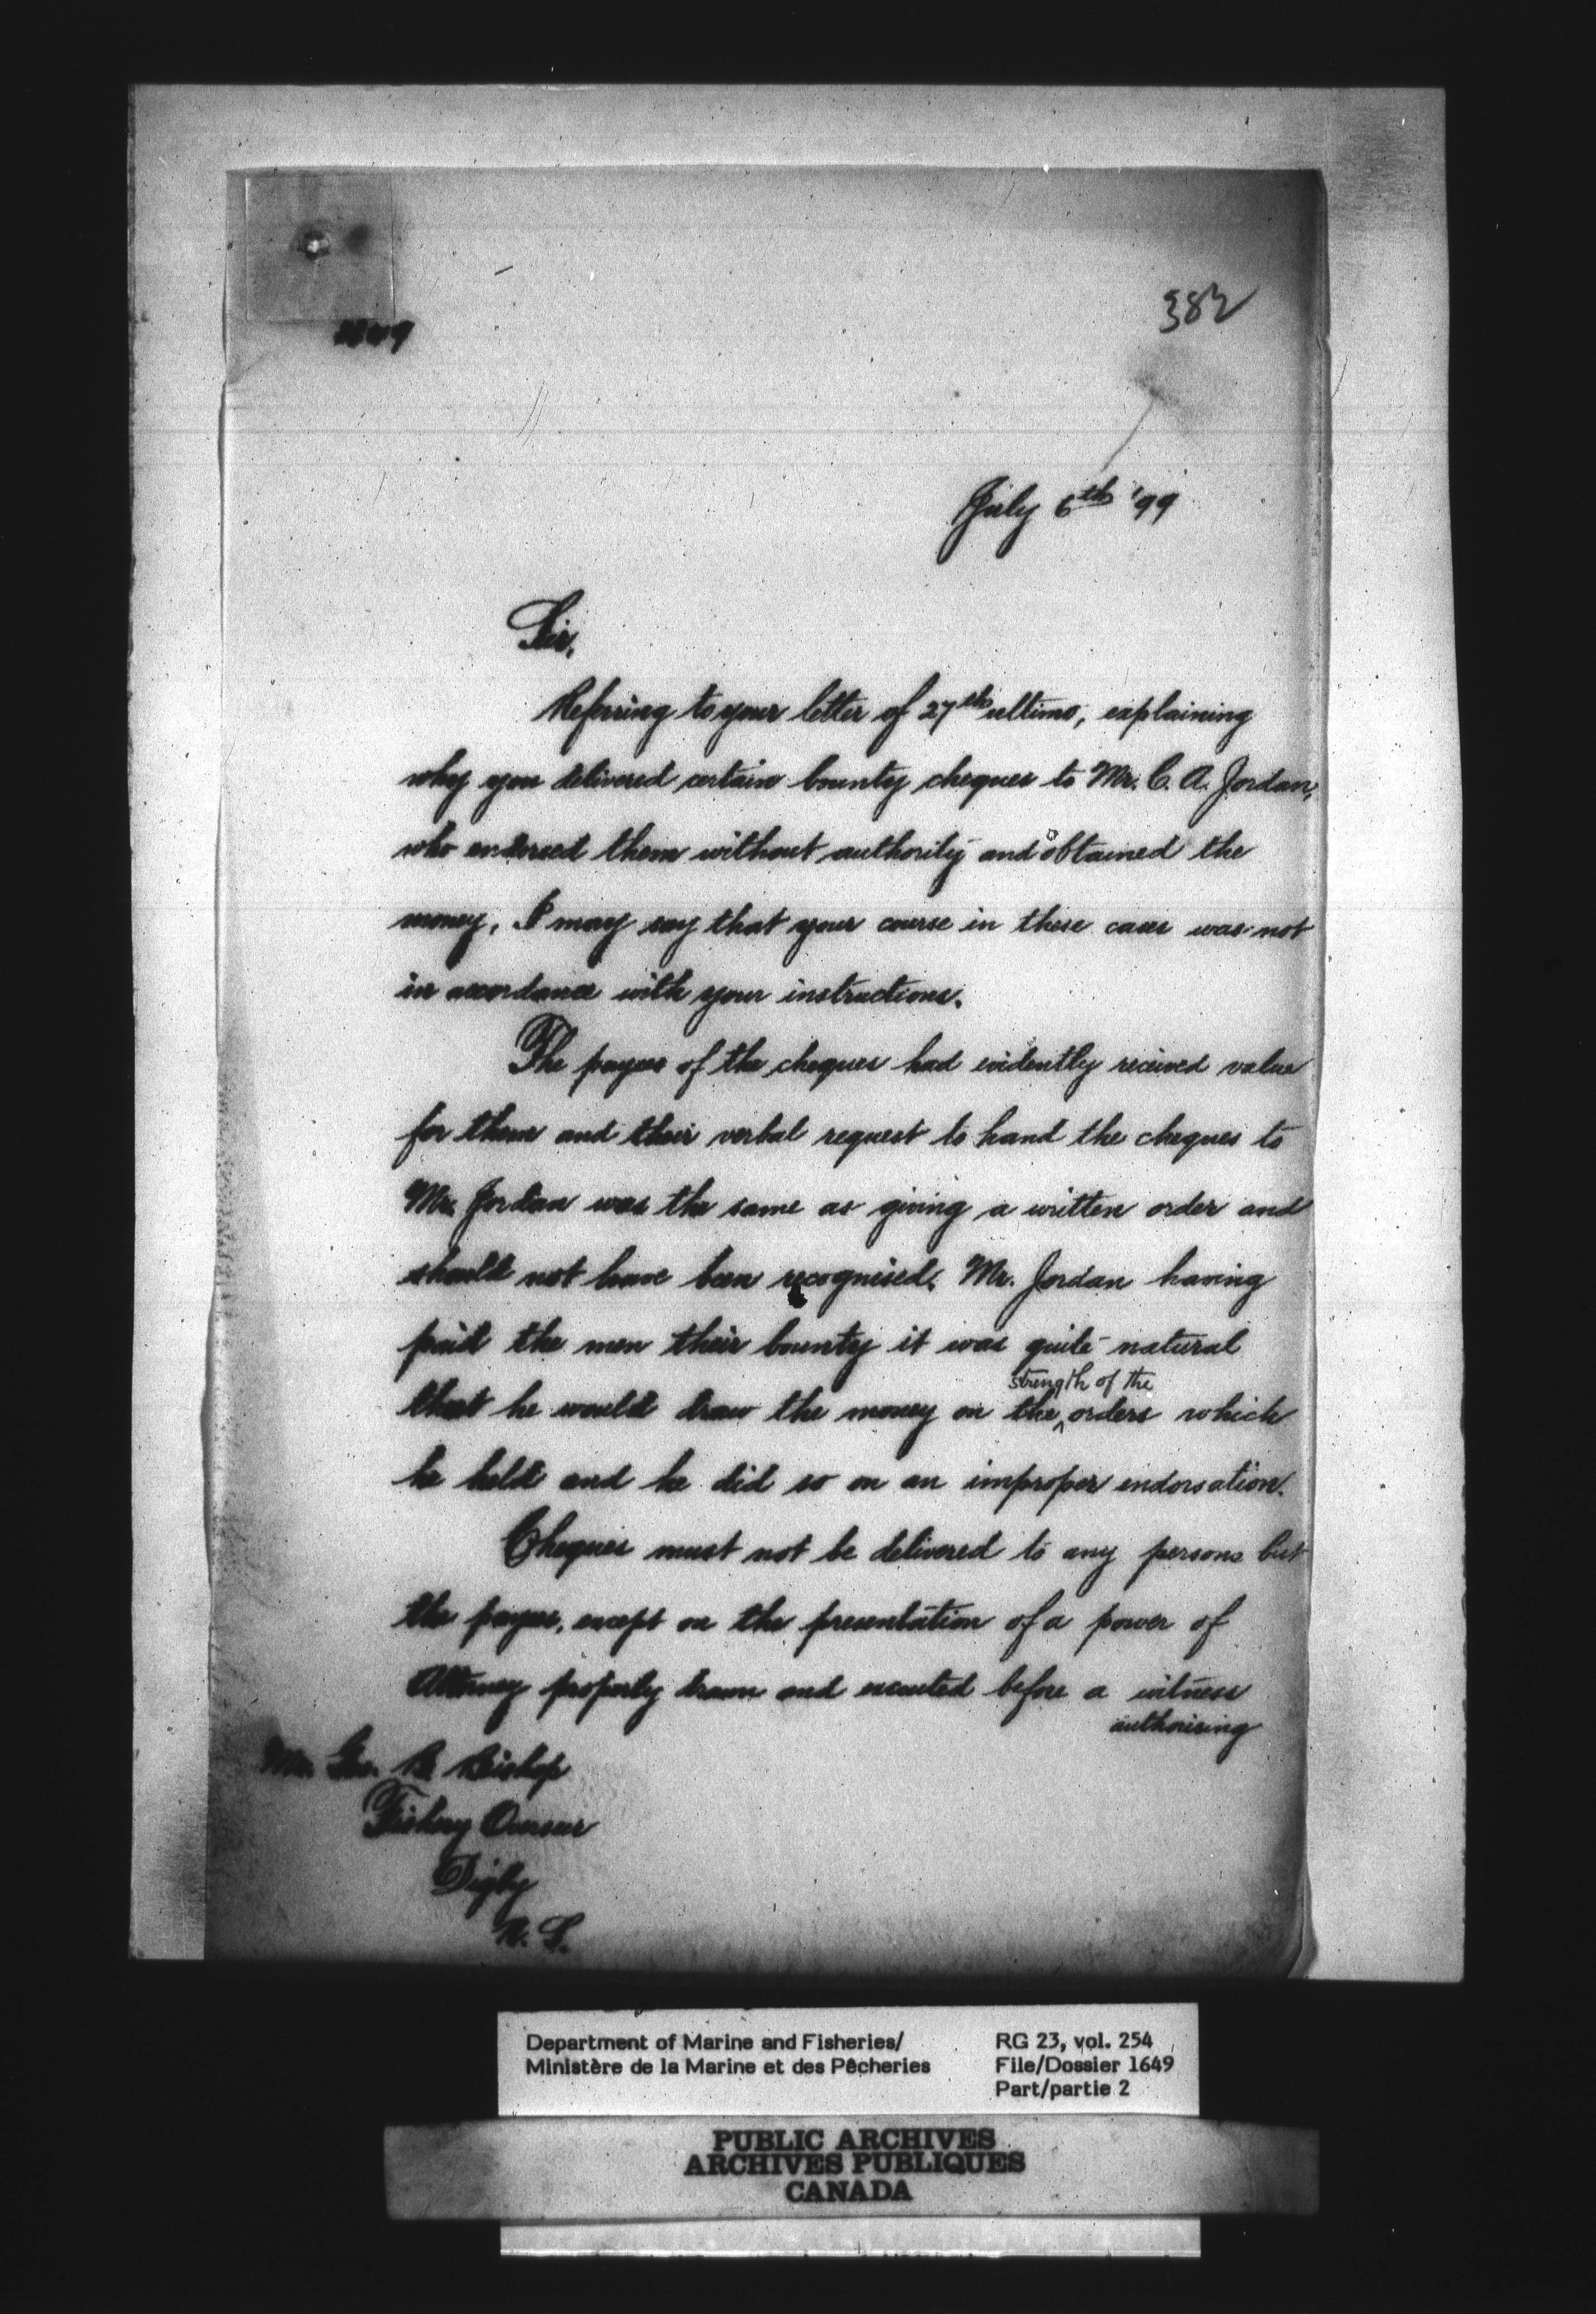 382
1649
July 6th '99
Sir,
Referring to your letter of 27th ultimo, explaining
why you delivered certain bounty cheques to Mr. C. A. Jordan,
who endorsed them without authority and obtained the
money, I may say that your course in these cases was not
in accordance with your instructions.
The payees of the cheques had evidently received value
for them and their verbal request to hand the cheques to
Mr. Jordan was the same as giving a written order and
should not have been recognised. Mr. Jordan having
paid the men their bounty it was quite natural
strength of the
that he would draw the money on the ^ orders which
he held and he did so on an improper endorsation.
Cheques must not be delivered to any persons but
the payees, except on the presentation of a power of
Attorney properly drawn and executed before a witness
authorising
Mr. Geo. B. Bishop
Fishery Overseer
Digby
N. S.
Department of Marine and Fisheries/
Ministère de la Marine et des Pêcheries
RG 23, vol. 254
File/Dossier 1649
Part/partie 2
PUBLIC ARCHIVES
ARCHIVES PUBLIQUES
CANADA